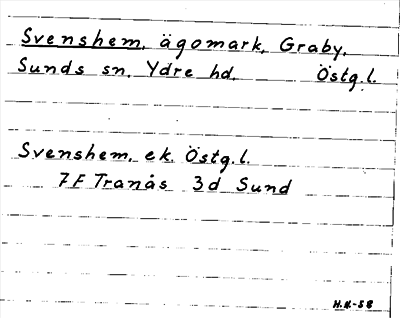 Svenshem, ägomark, Graby,
Sunds sn. Ydre hd. Östg.l.
Svenshem, ek. Östg.l.
7F Tranås 3d Sund
H.H.-58